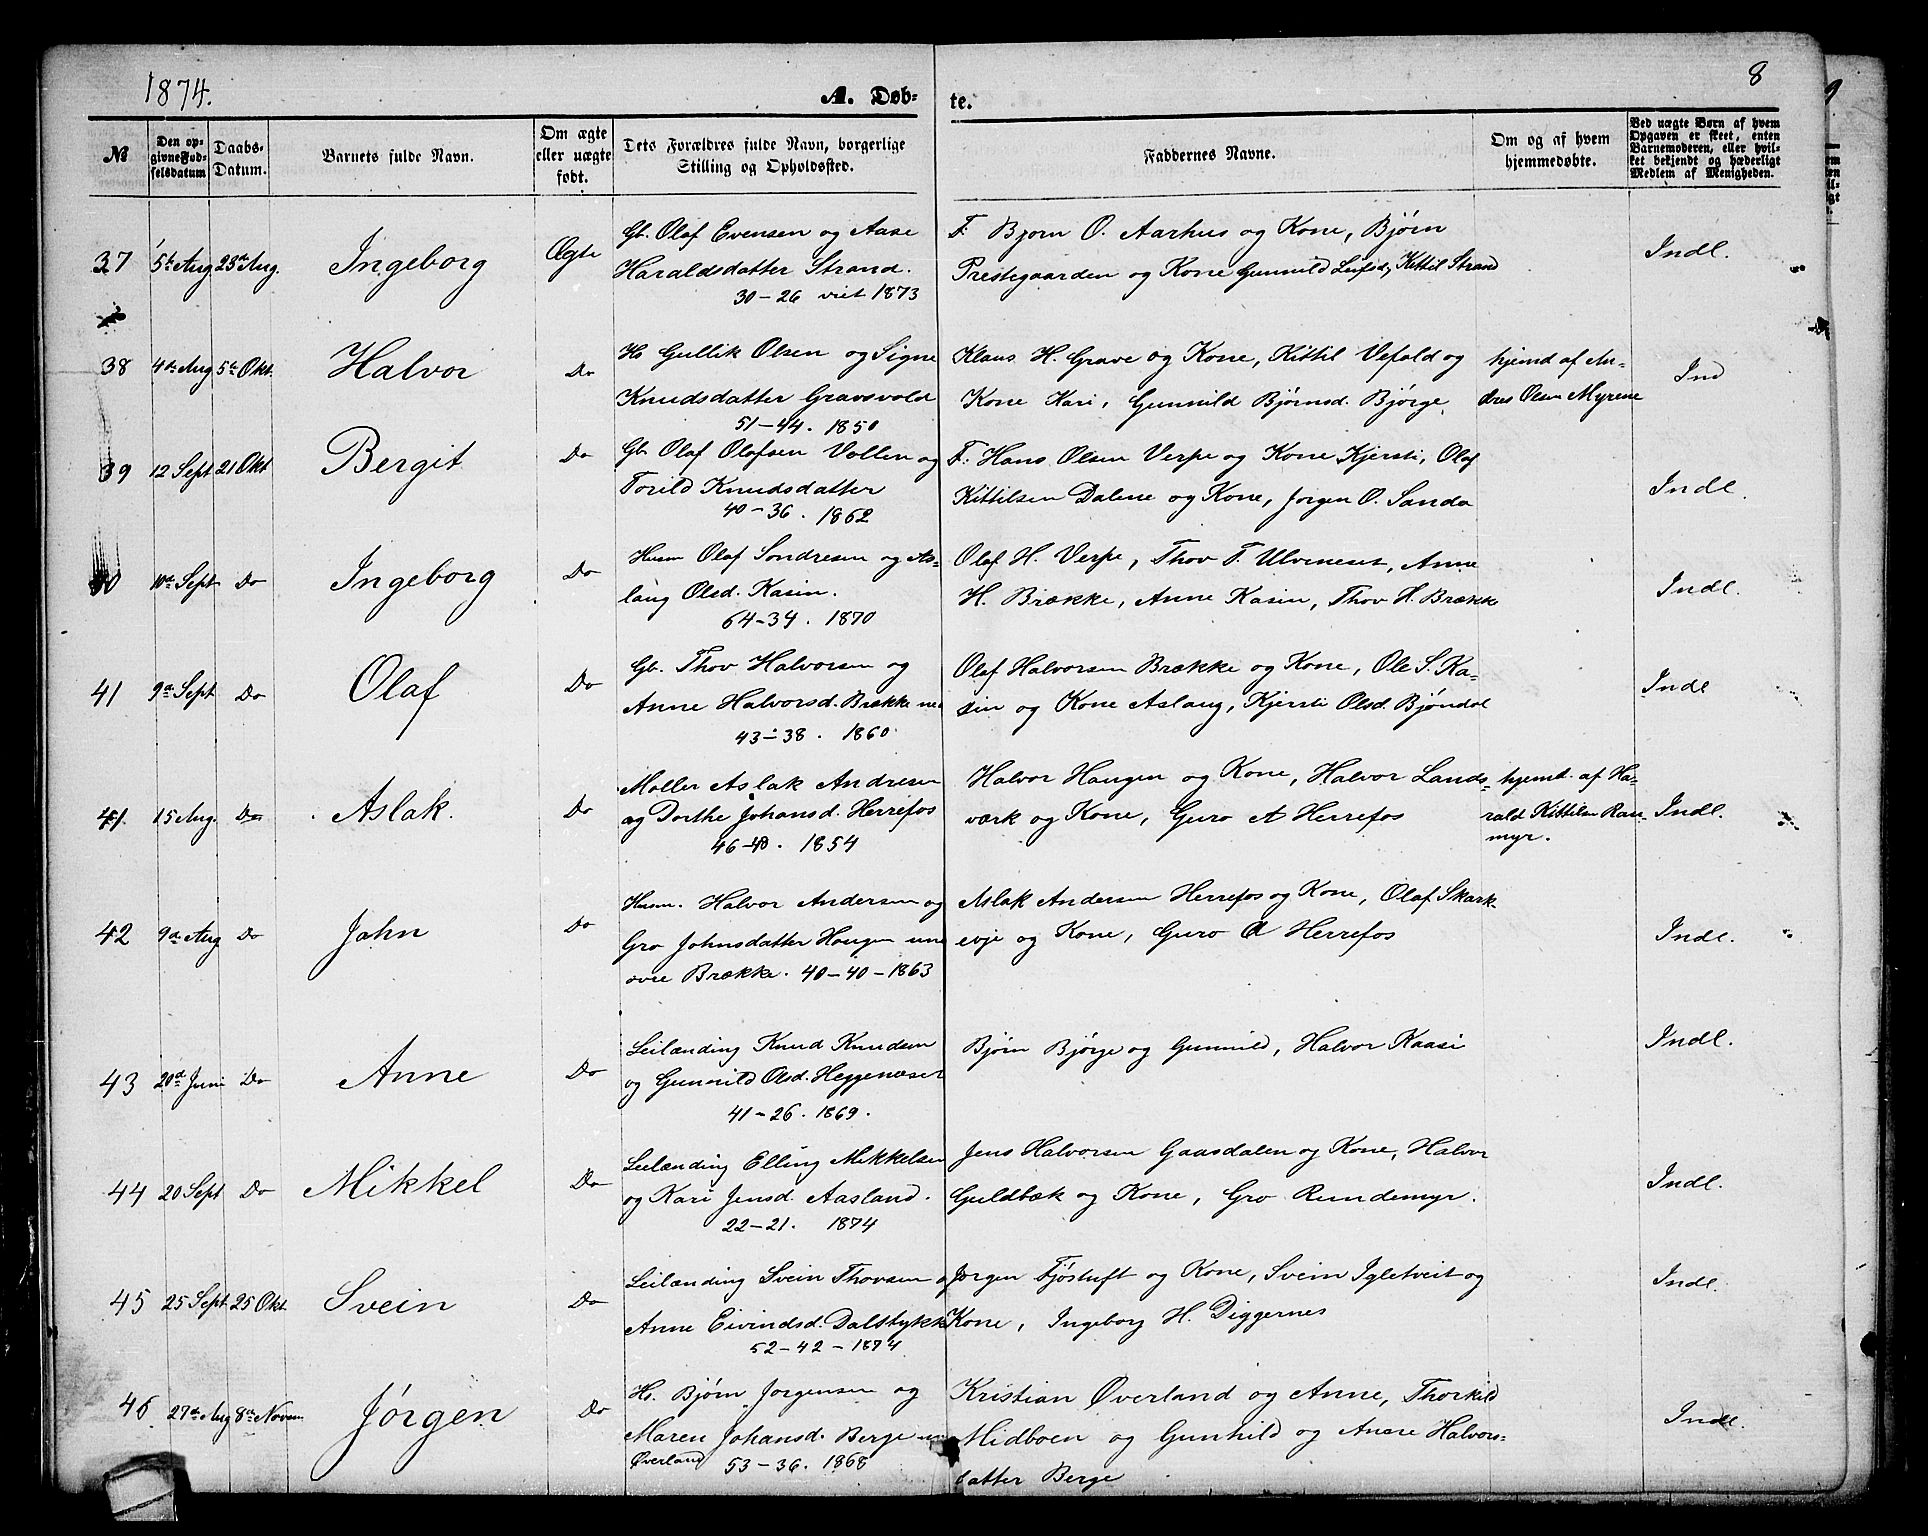 1874. A. Døb- te. 8
№ Den opgivne Fødselsdatum Daabs-Datum. Barnets fulde Navn. Om ægte eller uægte født. Dets Forældres fulde Navn, borgerlige Stilling og Opholdssted. Faddernes Navne. Om og af hvem hjemmedøbte. Ved uægte Børn af hvem Opgaven er skeet, enten Barnemoderen, eller hvilket bekjendt og hæderligt Medlem af Menigheden.
37 5te Aug 23de Aug. Ingeborg Ægte Gb. Olaf Evensen og Aase F. Bjorn O. Aarhus og Kone, Bjørn Indl.
Haraldsdatter Strand. Prestegaarden og Kone Gunnild Leifsd, Kittil Strand
30-26 viet 1873
38 4de Aug 5te Okt. Halvor Do Hs Gullik Olsen og Signe Klaus H. Grave og Kone, Kittil Vefald og hjemd af An- Ind
Knudsdatter Gravsvold Kone Kari, Gunnild Bjørnsd. Bjørge. dres Olsen Myrene
51-44. 1850
39 12 Sept 21 Okt Bergit Do Gb. Olaf Olafsen Vollen og F. Hans Olsen Verpe og Kone Kjersti, Olaf Indl.
Torild Knudsdatter Kittilsen Dalene og Kone, Jorgen O. Sanda
40-36. 1862
40 10de Sept Do Ingeborg Do Husm Olaf Sondresen og As- Olaf H. Verpe, Thov T. Ulveneset, Anne Indl.
laug Olsd. Kasin. H. Brække, Anne Kasin, Thov H. Brække
64-34. 1870
41 9de Sept Do Olaf Do Gb. Thov Halvorsen og Olaf Halvorsen Brække og Kone, Ole S. Ka- Indl
Anne Halvorsd. Brække ned sin og Kone Aslaug, Kjersti Olsd. Bjöndal
43-38. 1860.
41. 15 Aug. Do Aslak. Do Moller Aslak Andresen Halvor Haugen og Kone, Halvor Lands- hjemt. af Ha- Indl.
og Dorthe Johansd. Herrefos værk og Kone, Guro A Herrefos rald Kittilsen Rau-
46-40. 1854 myr.
42 9de Aug Do John Do Husm. Halvor Andersen og Aslak Andersen Herrefos og Kone, Olaf Skark- Indl.
Gro Johnsdatter Haugen un evje og Kone, Guro A Herrefos
ovre Brække. 40-40-1863
43 20de Juni Do Anne Do Leilænding Knud Knudsen Bjørn Bjørge og Gunnild, Halvor Kaasi Indl.
og Gunnild Olsd. Heggenæset
41-26. 1869.
44 20 Sept Do Mikkel Do Leilænding Elling Mikkelsen Jens Halvorsen Gaasdalen og Kone, Halvor Indl.
og Kari Jensd. Aasland. Guldbæk og Kone, Gro Rundemyr.
22-21. 1874
45 25 Sept 25 Okt. Svein Do Leilænding Svein Thovsen o Jorgen Tjöstuft og Kone, Svein Igletveit og Indl.
Anne Eivindsd. Dalstykk Kone, Ingeborg H. Diggernes
52-42-1874
46 27de Aug 8de Novem Jörgen Do Hs. Bjørn Jorgensen og Kristian Øverland og Anne, Thorkild Indl.
Maren Johansd. Berge un Midboen og Gunhild og Anne Halvors-
Øverland 53-36. 1868 datter Berge